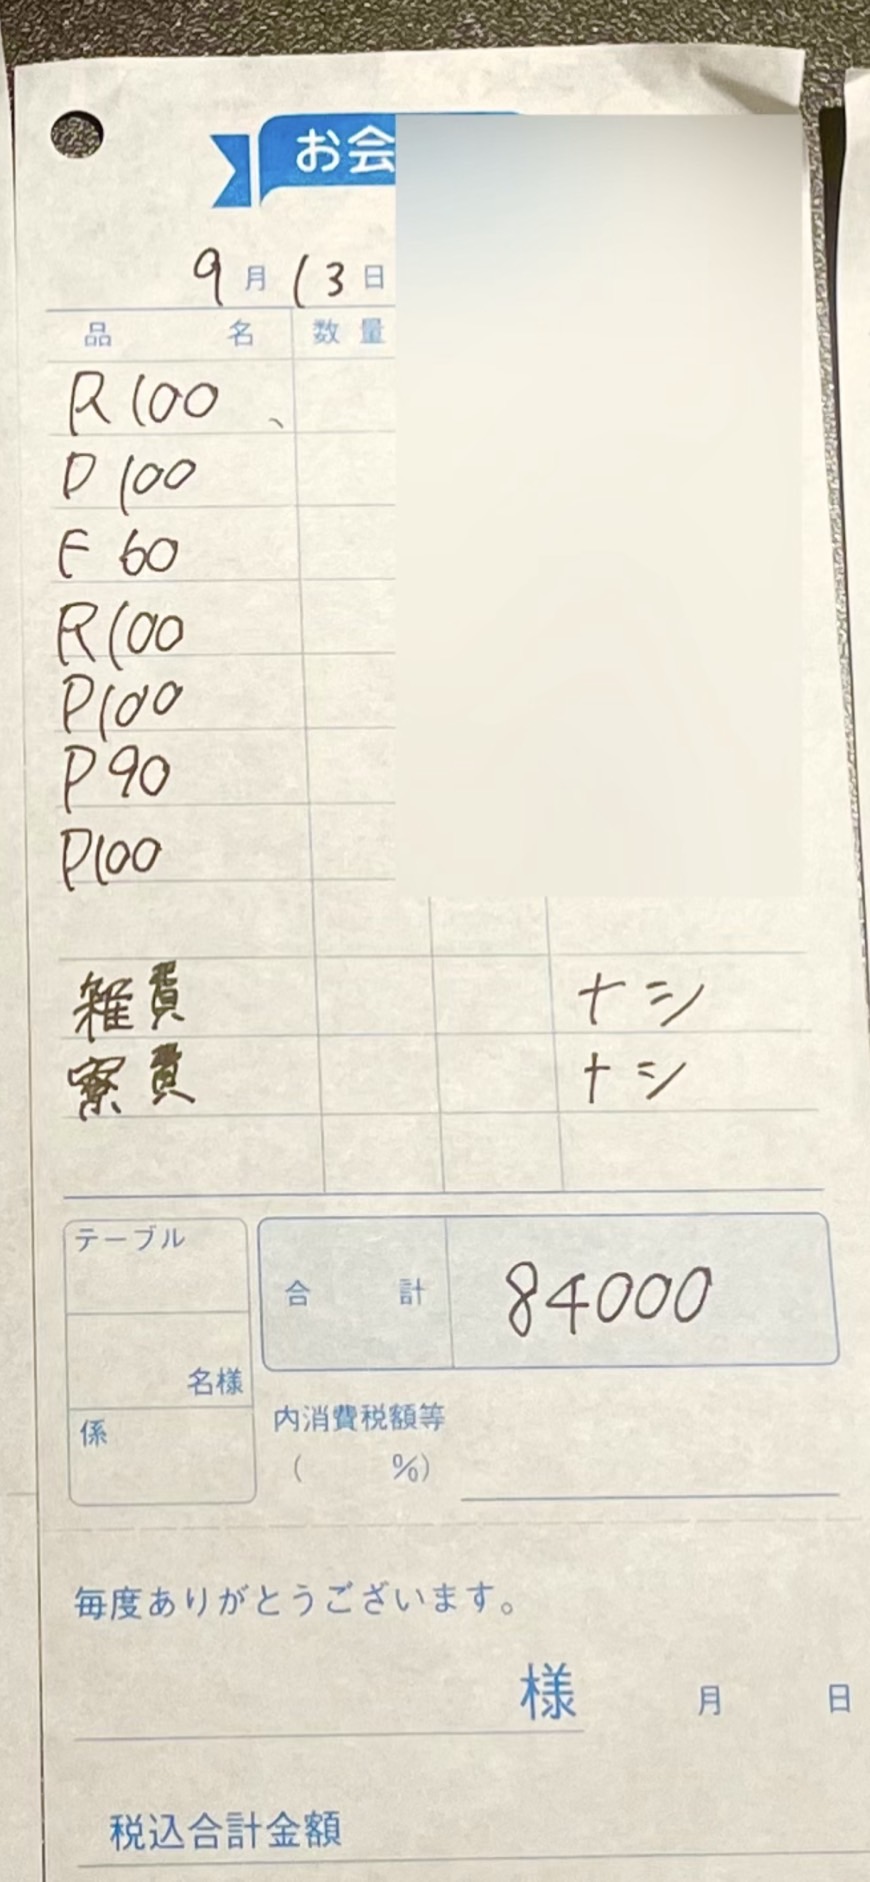 お会
9月13日
品名 数量
R100、
D100
F60
R100
P100
P90
P100
雑費 ナシ
寮費 ナシ
テーブル
合計 84000
名様
係
内消費税額等
( %)
毎度ありがとうございます。
様 月 日
税込合計金額